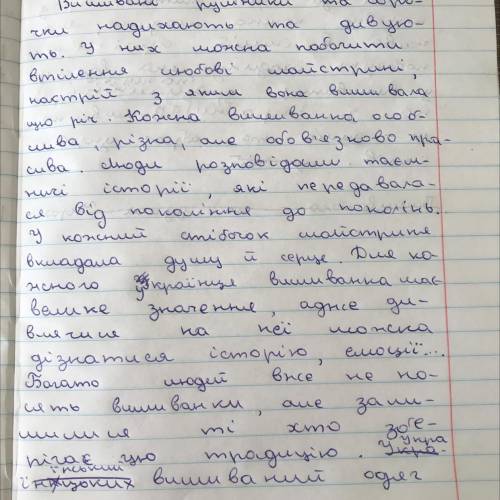 Вишивані рушники та соро-
чки надихають та дивую-
ть. У них можна побачити
втілення любові майстрині,
настрій з яким вона вишивала
цю річ. Кожна вишиванка особ-
лива, різна, але обов'язково кра-
сива. Люди розповідали таєм-
ничі історії, які передавала-
ся від покоління до поколінь.
У кожний стібочок майстриня
вкладала душу й серце. Для ко-
жного українця вишиванка має
велике значення, адже ди-
влячися на неї можна
дізнатися історію, емоції...
Багато людей вже не но-
сять вишиванки, але зали-
шилися ті хто збе-
рігає цю традицію. У Укра
інський вишиваний одяг